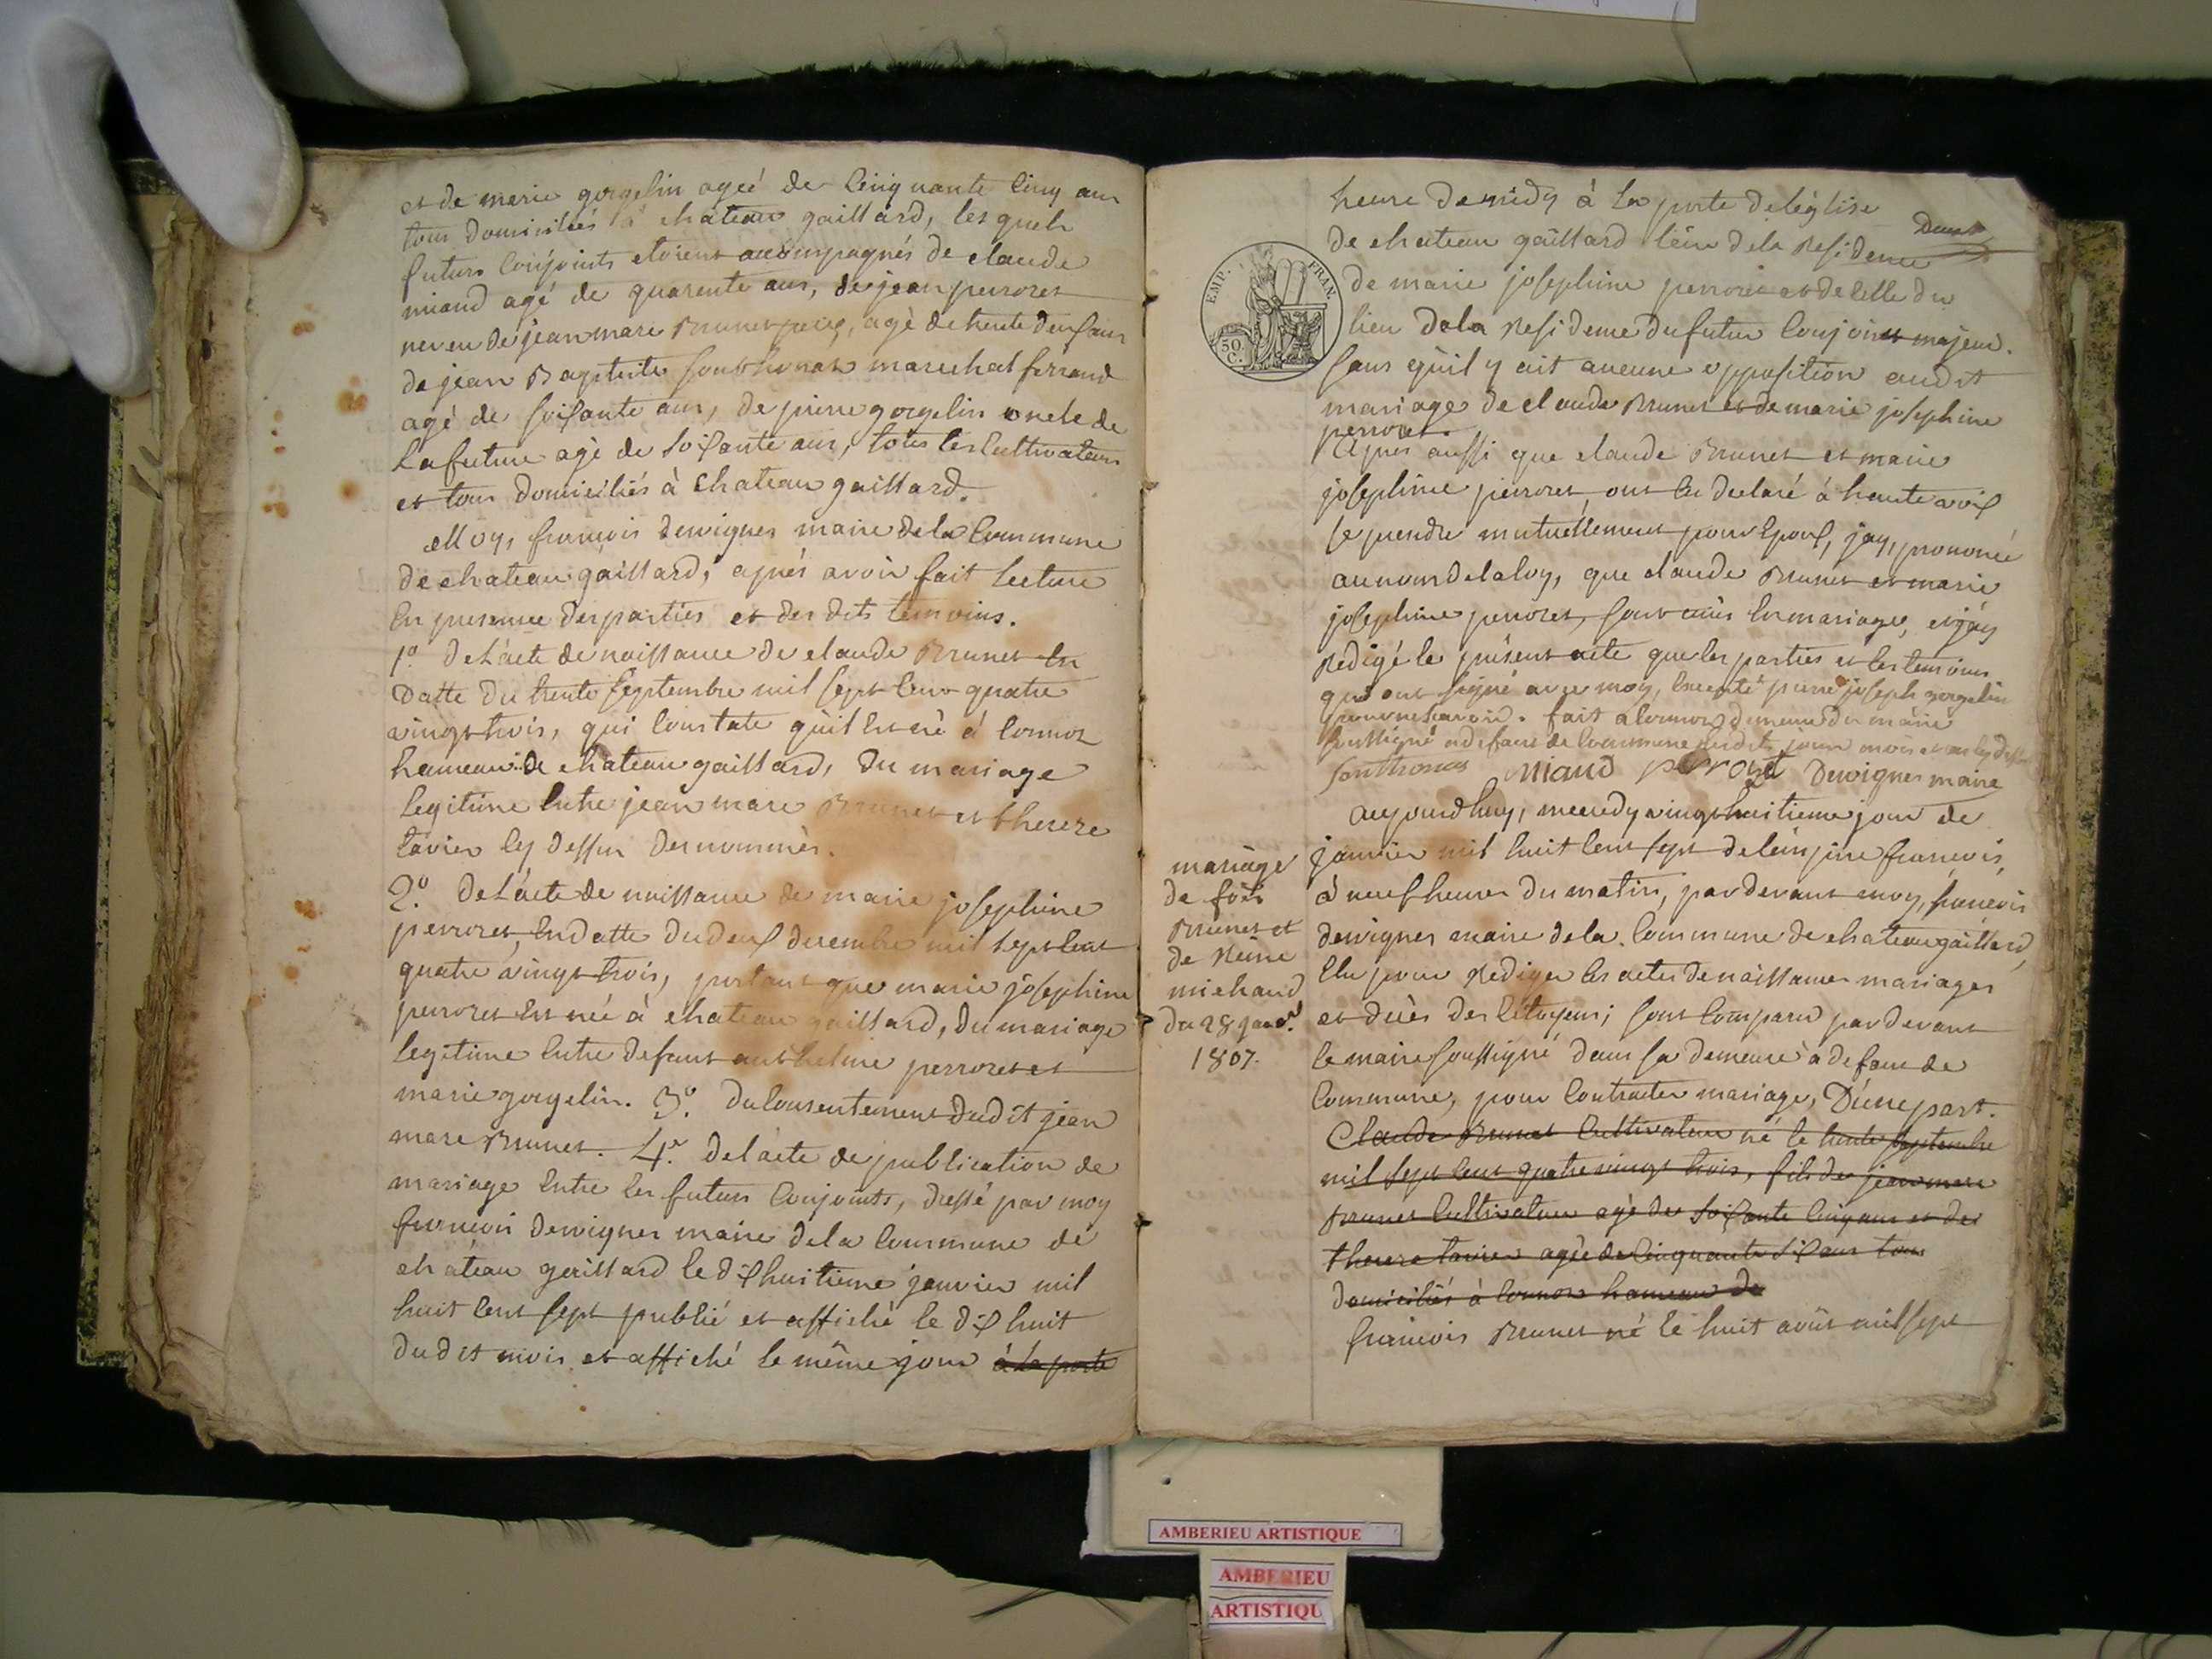 et de marie gorgelin ageé de cinquante cinq ans
tous domiciliés à chateau gaillard, les quels
futurs conjoints etoient accompagnés de claude
miand agé de quarente ans, de jean perrozet
neveu de jean marc Brunet, agé de trente deux ans
de jean Baptiste southonax marechal ferrand
agé de soixante ans, de pierre gorgelin oncle de
la future agé de soixante ans, tous les cultivateurs
et tous domiciliés à chateau gaillard.
Moy, françois dervignes maire de la Commune
de chateau gaillard, après avoir fait lecture
en presence des parties et des dits temoins.
1º. de l'acte de naissance de claude Brunet en
datte du trente septembre mil sept cent quatre
vingt trois, qui constate qu'il est né à cormoz
hameau de chateau gaillard, du mariage
legitime entre jean marc Brunet et therese
tavier cy dessus denommés.
2º. de l'acte de naissance de marie josephine
perrozet, en datte du deux decembre mil sept cent
quatre vingt trois, portant que marie josephine
perrozet est née à chateau gaillard, du mariage
legitime entre defunt anthelme perrozet et
marie gorgelin. 3º. du consentement dudit jean
marc Brunet. 4º. de l'acte de publication de
mariage entre les futurs conjoints, dressé par moy
françois dervignes maire de la commune de
chateau gaillard le dix huitieme janvier mil
huit cent sept publié et affiché le dix huit
dudit mois et affiché le même jour à la porte
heure de midy à la porte de l'église
de chateau gaillard lieu de la residence
de marie josephine perrozet et de celle du
lieu de la residence du futur conjoint majeur.
sans qu'il y ait aucune opposition audit
mariage de claude Brunet et de marie josephine
perrozet.
Après aussi que claude Brunet et marie
josephine perrozet, ont eu declaré à haute voix
se prendre mutuellement pour epoux, jay, prononcé
au nom de la loy, que claude Brunet et marie
josephine perrozet, sont unis en mariage, et jay
redigé le présent acte que les parties et les temoins
qui ont signé avec moy, excepté pierre joseph gorgelin
pour ne savoir. fait a cormoz demeure du maire
soussigné a defaut de commune lesdits jour mois et an
southonax Miand perrozet Dervignes maire
EMP. FRAN.
50.
C.
mariage
de fois
Brunet et
de Reine
michaud
du 28 janv.
1807.
aujourdhuy, mercredy vingt huitieme jour de
janvier mil huit cent sept de l'empire francois,
à neuf heures du matin, par devant moy, françois
dervignes maire de la commune de chateau gaillard,
elu pour rediger les actes de naissances mariages
et décès des citoyens; sont comparu par devant
le maire soussigné dans sa demeure à defaut de
commune, pour contracter mariage, D'une part.
Claude Brunet cultivateur né le trente septembre
mil sept cent quatre vingt trois, fils de jean marc
Brunet cultivateur agé de soixante cinq ans et de
therese tavier agée de cinquante six ans tous
domiciliés à cormoz hameau de
francois Brunet né le huit août mil sept
AMBERIEU ARTISTIQUE
AMBERIEU
ARTISTIQU